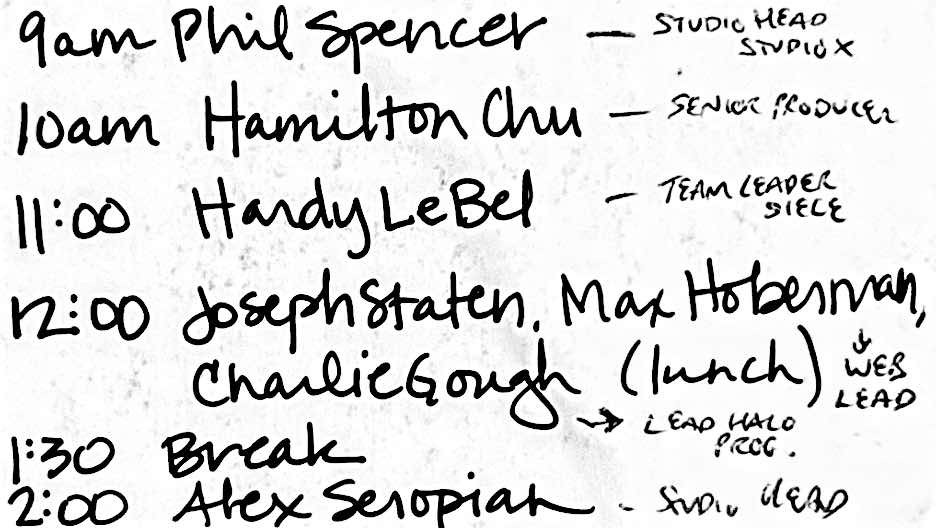 9am Phil Spencer — STUDIO HEAD
STUDIO X
10am Hamilton Chu — SENIOR PRODUCER
11:00 Hardy LeBel — TEAM LEADER
SIEGE
12:00 Joseph Staten, Max Hoberman,
Charlie Gough (lunch) ↓ WEB
LEAD
→ LEAD HALO
PROG.
1:30 Break
2:00 Alex Seropian - STUDIO HEAD